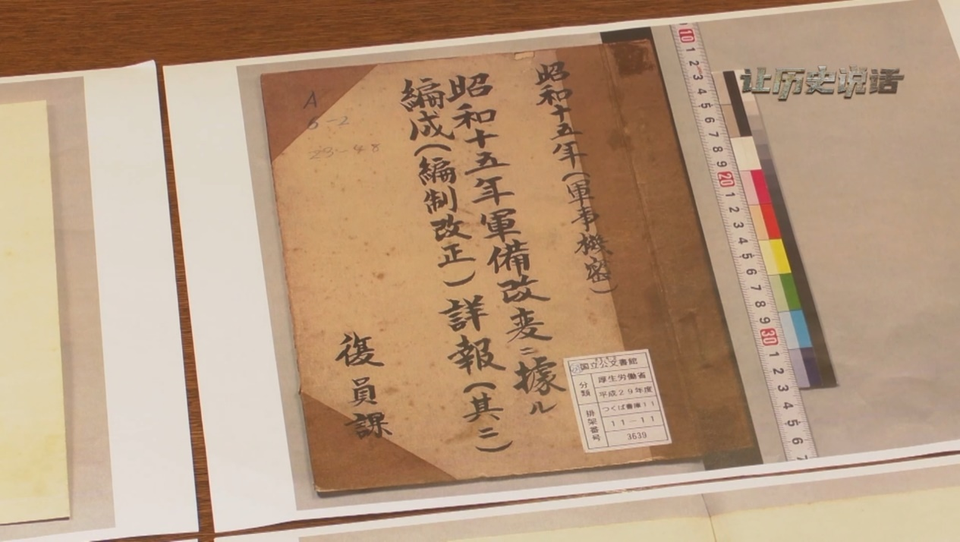 让历史说话
昭和十五年（軍事機密）
昭和十五年軍備改変ニ據ル
編成（編制改正）詳報（其二）
復員課
A
6-2
23-48
国立公文書館
分類
厚生労働省
平成29年度
つくば書庫11
排架番号
11-11
3639
10 1 2 3 4 5 6 7 8 9 20 1 2 3 4 5 6 7 8 9 30 1 2 3 4 5 6 7